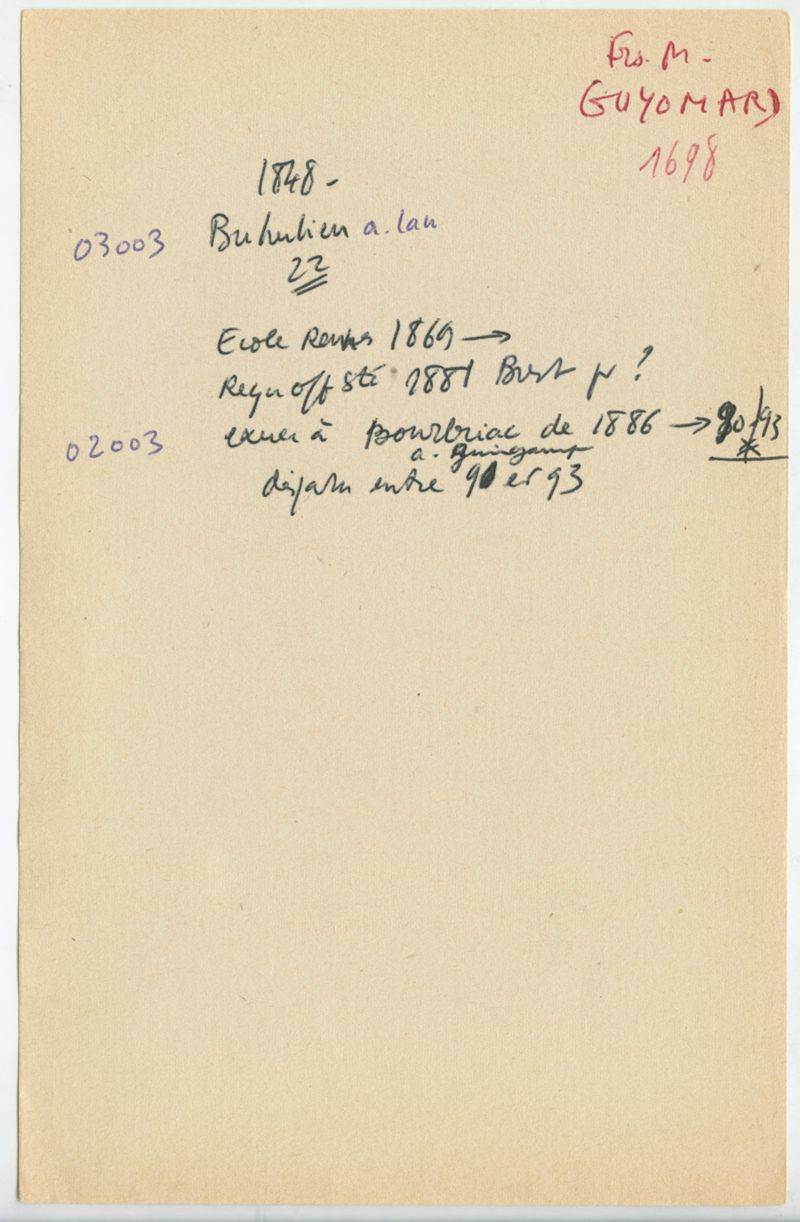 Frs. M.
GUYOMARD
1698
1848 -
03003 Buhulien a. lan
22
Ecole Rennes 1869 →
Reçu off Sté 1881 Brest pr ?
02003 exerce à Bourbriac de 1886 → 90/93
*
a. Guingamp
disparu entre 90 et 93